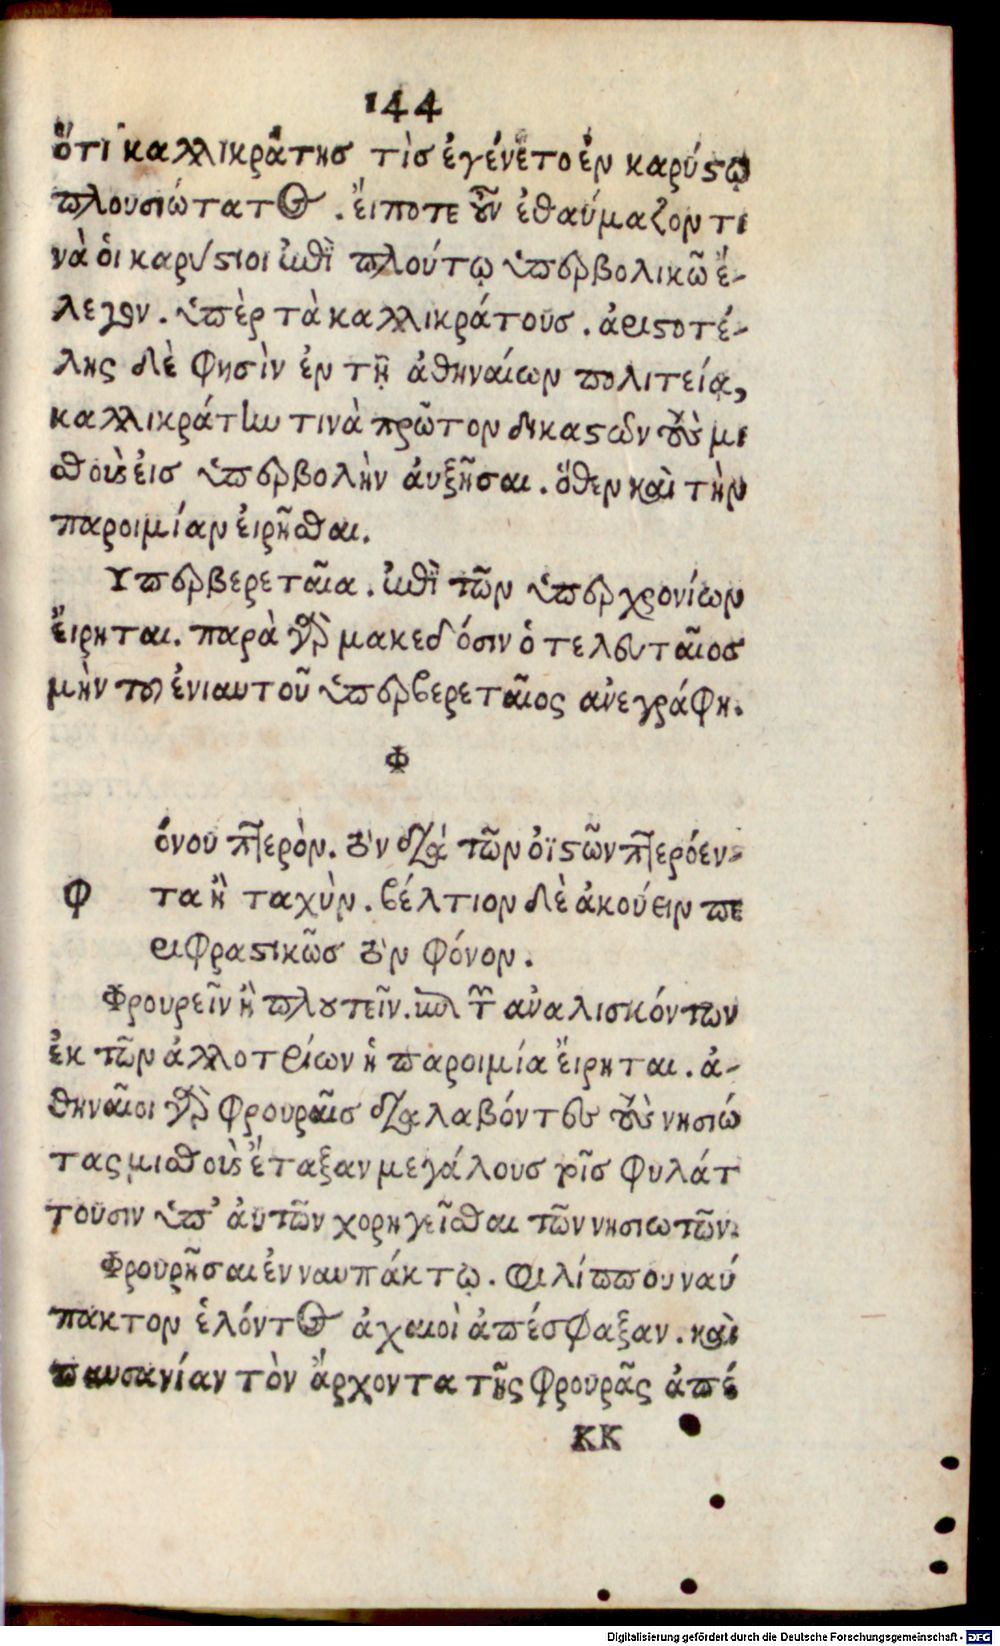 144
ὅτι καλλικράτης τὶς ἐγένετο ἐν καρύστῳ
πλουσιώτατος. ἔιποτε οὖν ἐθαύμαζον τι
νὰ ὁι καρύστιοι ἐπὶ πλούτῳ ὑπερβολικῶ ἔ-
λεγον. ὑπὲρ τὰ καλλικράτους. ἀριστοτέ-
λης δὲ φησὶν ἐν τῇ ἀθηναίων πολιτεία,
καλλικράτην τινὰ πρῶτον δικαστῶν τοὺς μι
σθοὺς ἐις ὑπερβολὴν ἀυξῆσαι. ὅθεν καὶ τὴν
παροιμίαν ἐιρῆσθαι.
Υπερβερεταῖα. ἐπὶ τῶν ὑπερχρονίων
ἔιρηται. παρὰ γὰρ μακεδόσιν ὁ τελευταῖος
μὴν τοῦ ἐνιαυτοῦ ὑπερβερεταῖος ἀνεγράφη.
Φ
όνου πτερὸν. τὸν διὰ τῶν ὀϊστῶν πτερόεν-
Φ τα ἢ ταχὺν. βέλτιον δὲ ἀκούειν πε
ριφραστικῶς τὸν φόνον.
Φρουρεῖν ἢ πλουτεῖν. κατὰ τῶν ἀναλισκόντων
ἐκ τῶν ἀλλοτρίων ἡ παροιμία ἔιρηται. ἀ-
θηναῖοι γὰρ φρουραῖς διαλαβόντες τοὺς νησιώ
τας μισθοὺς ἔταξαν μεγάλους τοῖς φυλάτ
τουσιν ὑπ' ἀυτῶν χορηγεῖσθαι τῶν νησιωτῶν.
Φρουρῆσαι ἐν ναυπάκτῳ. φιλίππου ναύ
πακτον ἑλόντος ἀχαιοὶ ἀπέσφαξαν. καὶ
παυσανίαν τὸν ἄρχοντα τῆς φρουρᾶς ἀπέ
KK
Digitalisierung gefördert durch die Deutsche Forschungsgemeinschaft - DFG